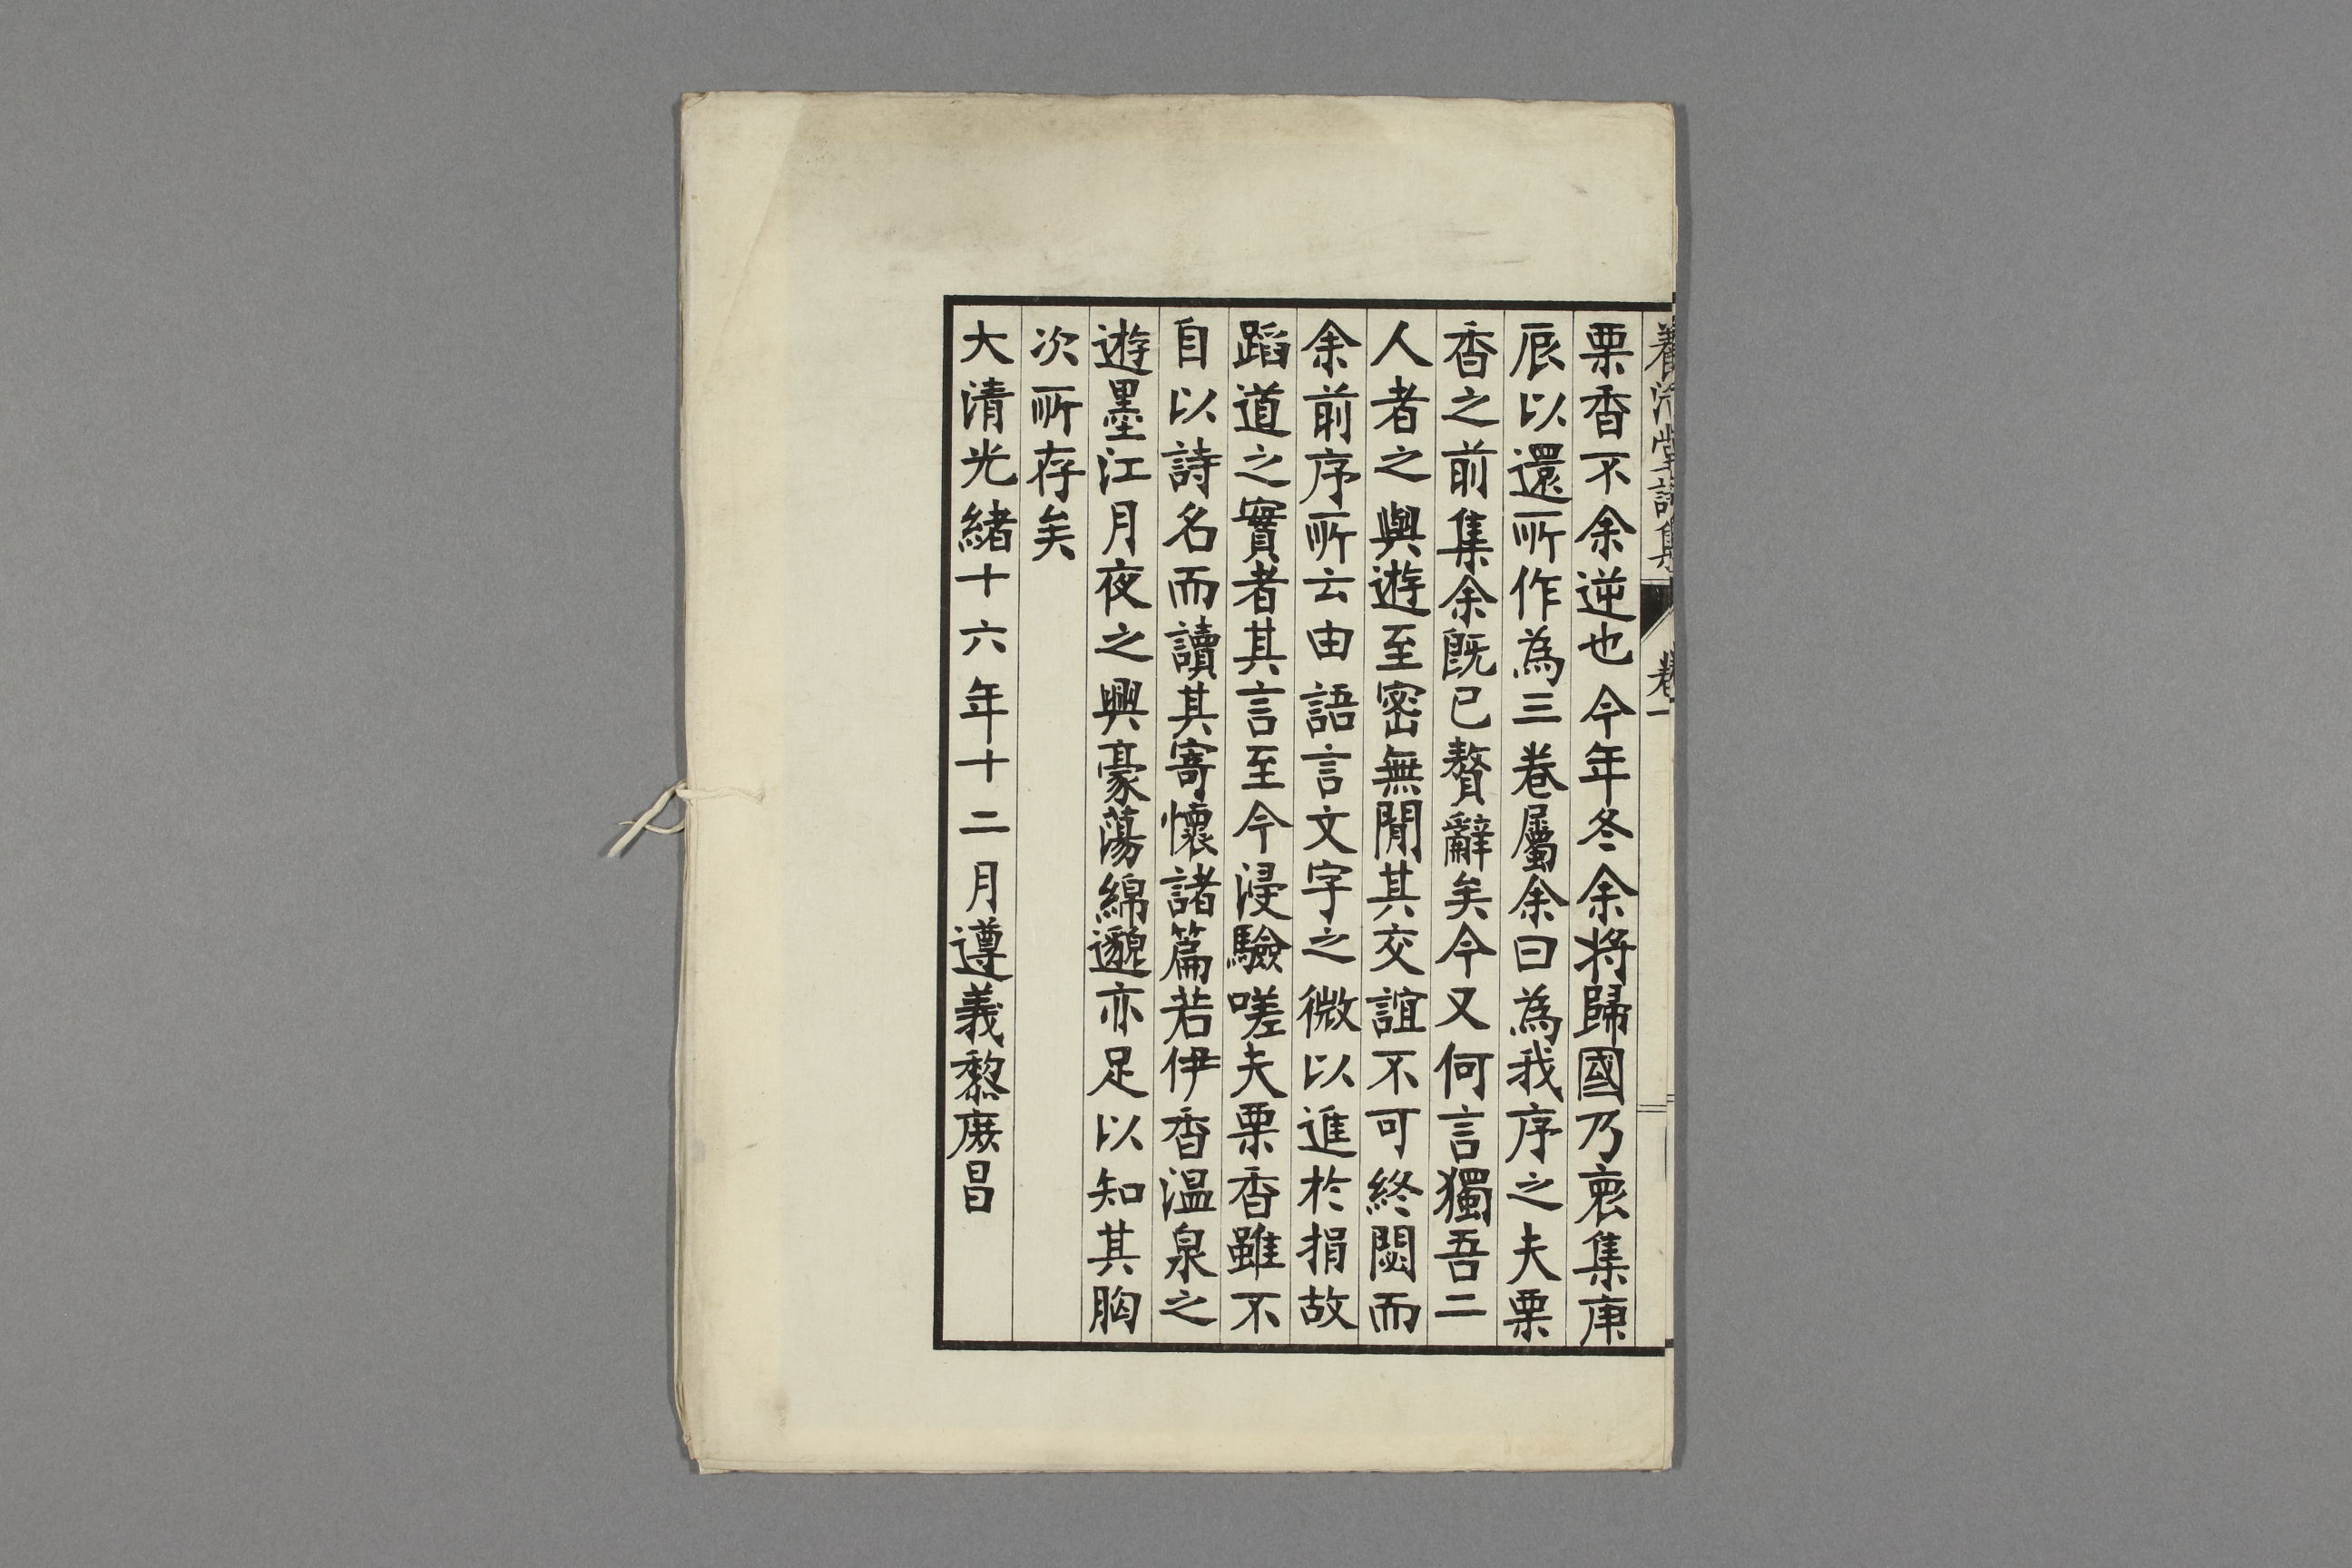 養浩堂詩集 卷一
栗香不余逆也今年冬余将歸國乃裒集庚
辰以還所作為三卷屬余曰為我序之夫栗
香之前集余既已贅辭矣今又何言獨吾二
人者之與遊至密無間其交誼不可終閟而
余前序所云由語言文字之微以進於捐故
蹈道之實者其言至今浸驗嗟夫栗香雖不
自以詩名而讀其寄懷諸篇若伊香温泉之
遊墨江月夜之興豪蕩綿邈亦足以知其胸
次所存矣
大清光緒十六年十二月遵義黎庶昌